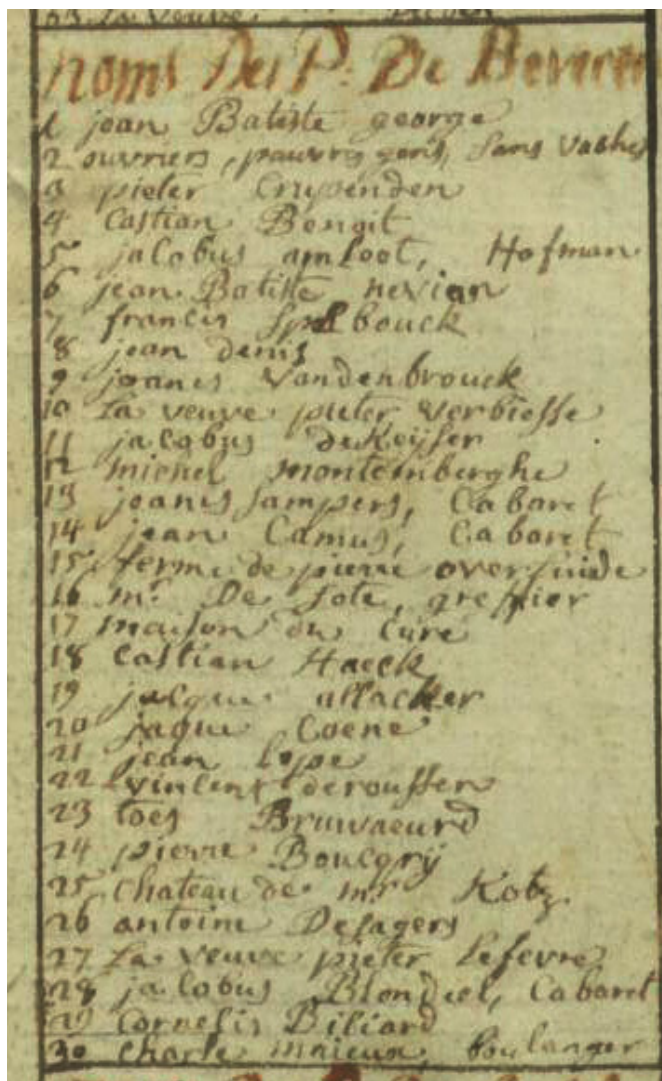 53 La Veuve
noms Des P. De Beveren
1 jean Batiste george
2 ouvriers, pauvres gens, sans vaches
3 pieter Crupenden
4 Castian Benoit
5 jacobus amloot, Hofman
6 jean Batiste nevian
7 francis Spelbouck
8 jean denis
9 joanes Vandenbrouck
10 La veuve pieter verbiesse
11 jacobus deKeijser
12 michel montenberghe
13 joanis sampers, Cabaret
14 jean Camus, Cabaret
15 ferme de pierre
16 mr. De Sote, greffier
17 maison du Cure
18 Castian Haeck
19 jacque allacker
20 jaque Coene
21 jean lope
22 vincent derousser
23 toes Bruwaeurd
24 pierre Boucgrij
25 Chateau de mr Kotz
26 antoine Desagers
27 La veuve pieter Lefevre
28 jacobus Blondeel, Cabaret
29 Cornelis Biliard
30 charle maieux, boulanger